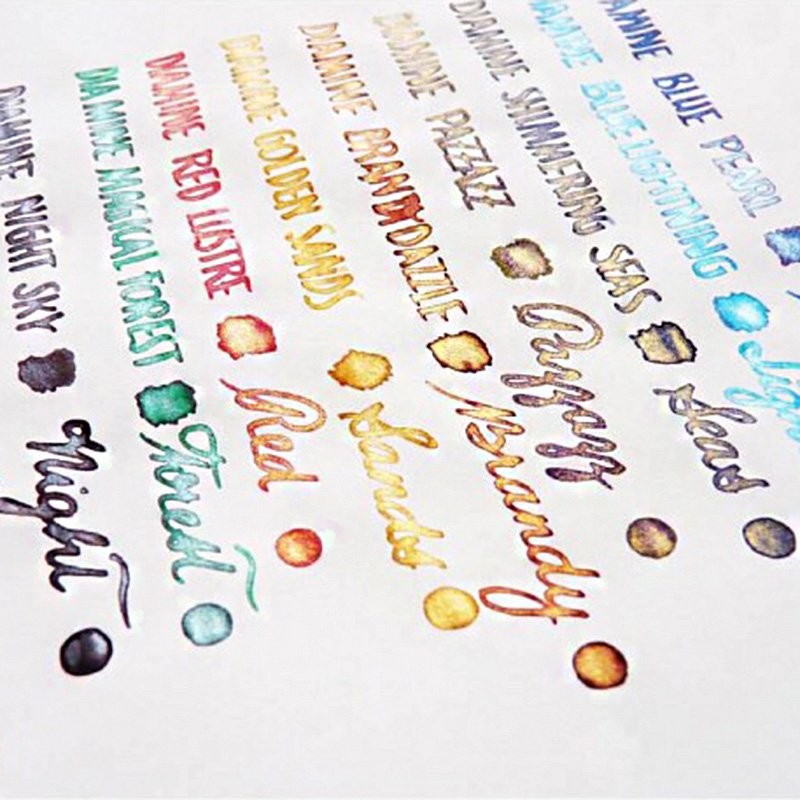 AMINE BLUE PEARL
AMINE BLUE LIGHTNING Ligh
DIAMINE SHIMMERING SEAS Seas
DIAMINE PAZZAZZ Pazzazz
DIAMINE BRANDY DAZZLE Brandy
DIAMINE GOLDEN SANDS Sands
DIAMINE RED LUSTRE Red
DIAMINE MAGICAL FOREST Forest
DIAMINE NIGHT SKY Night